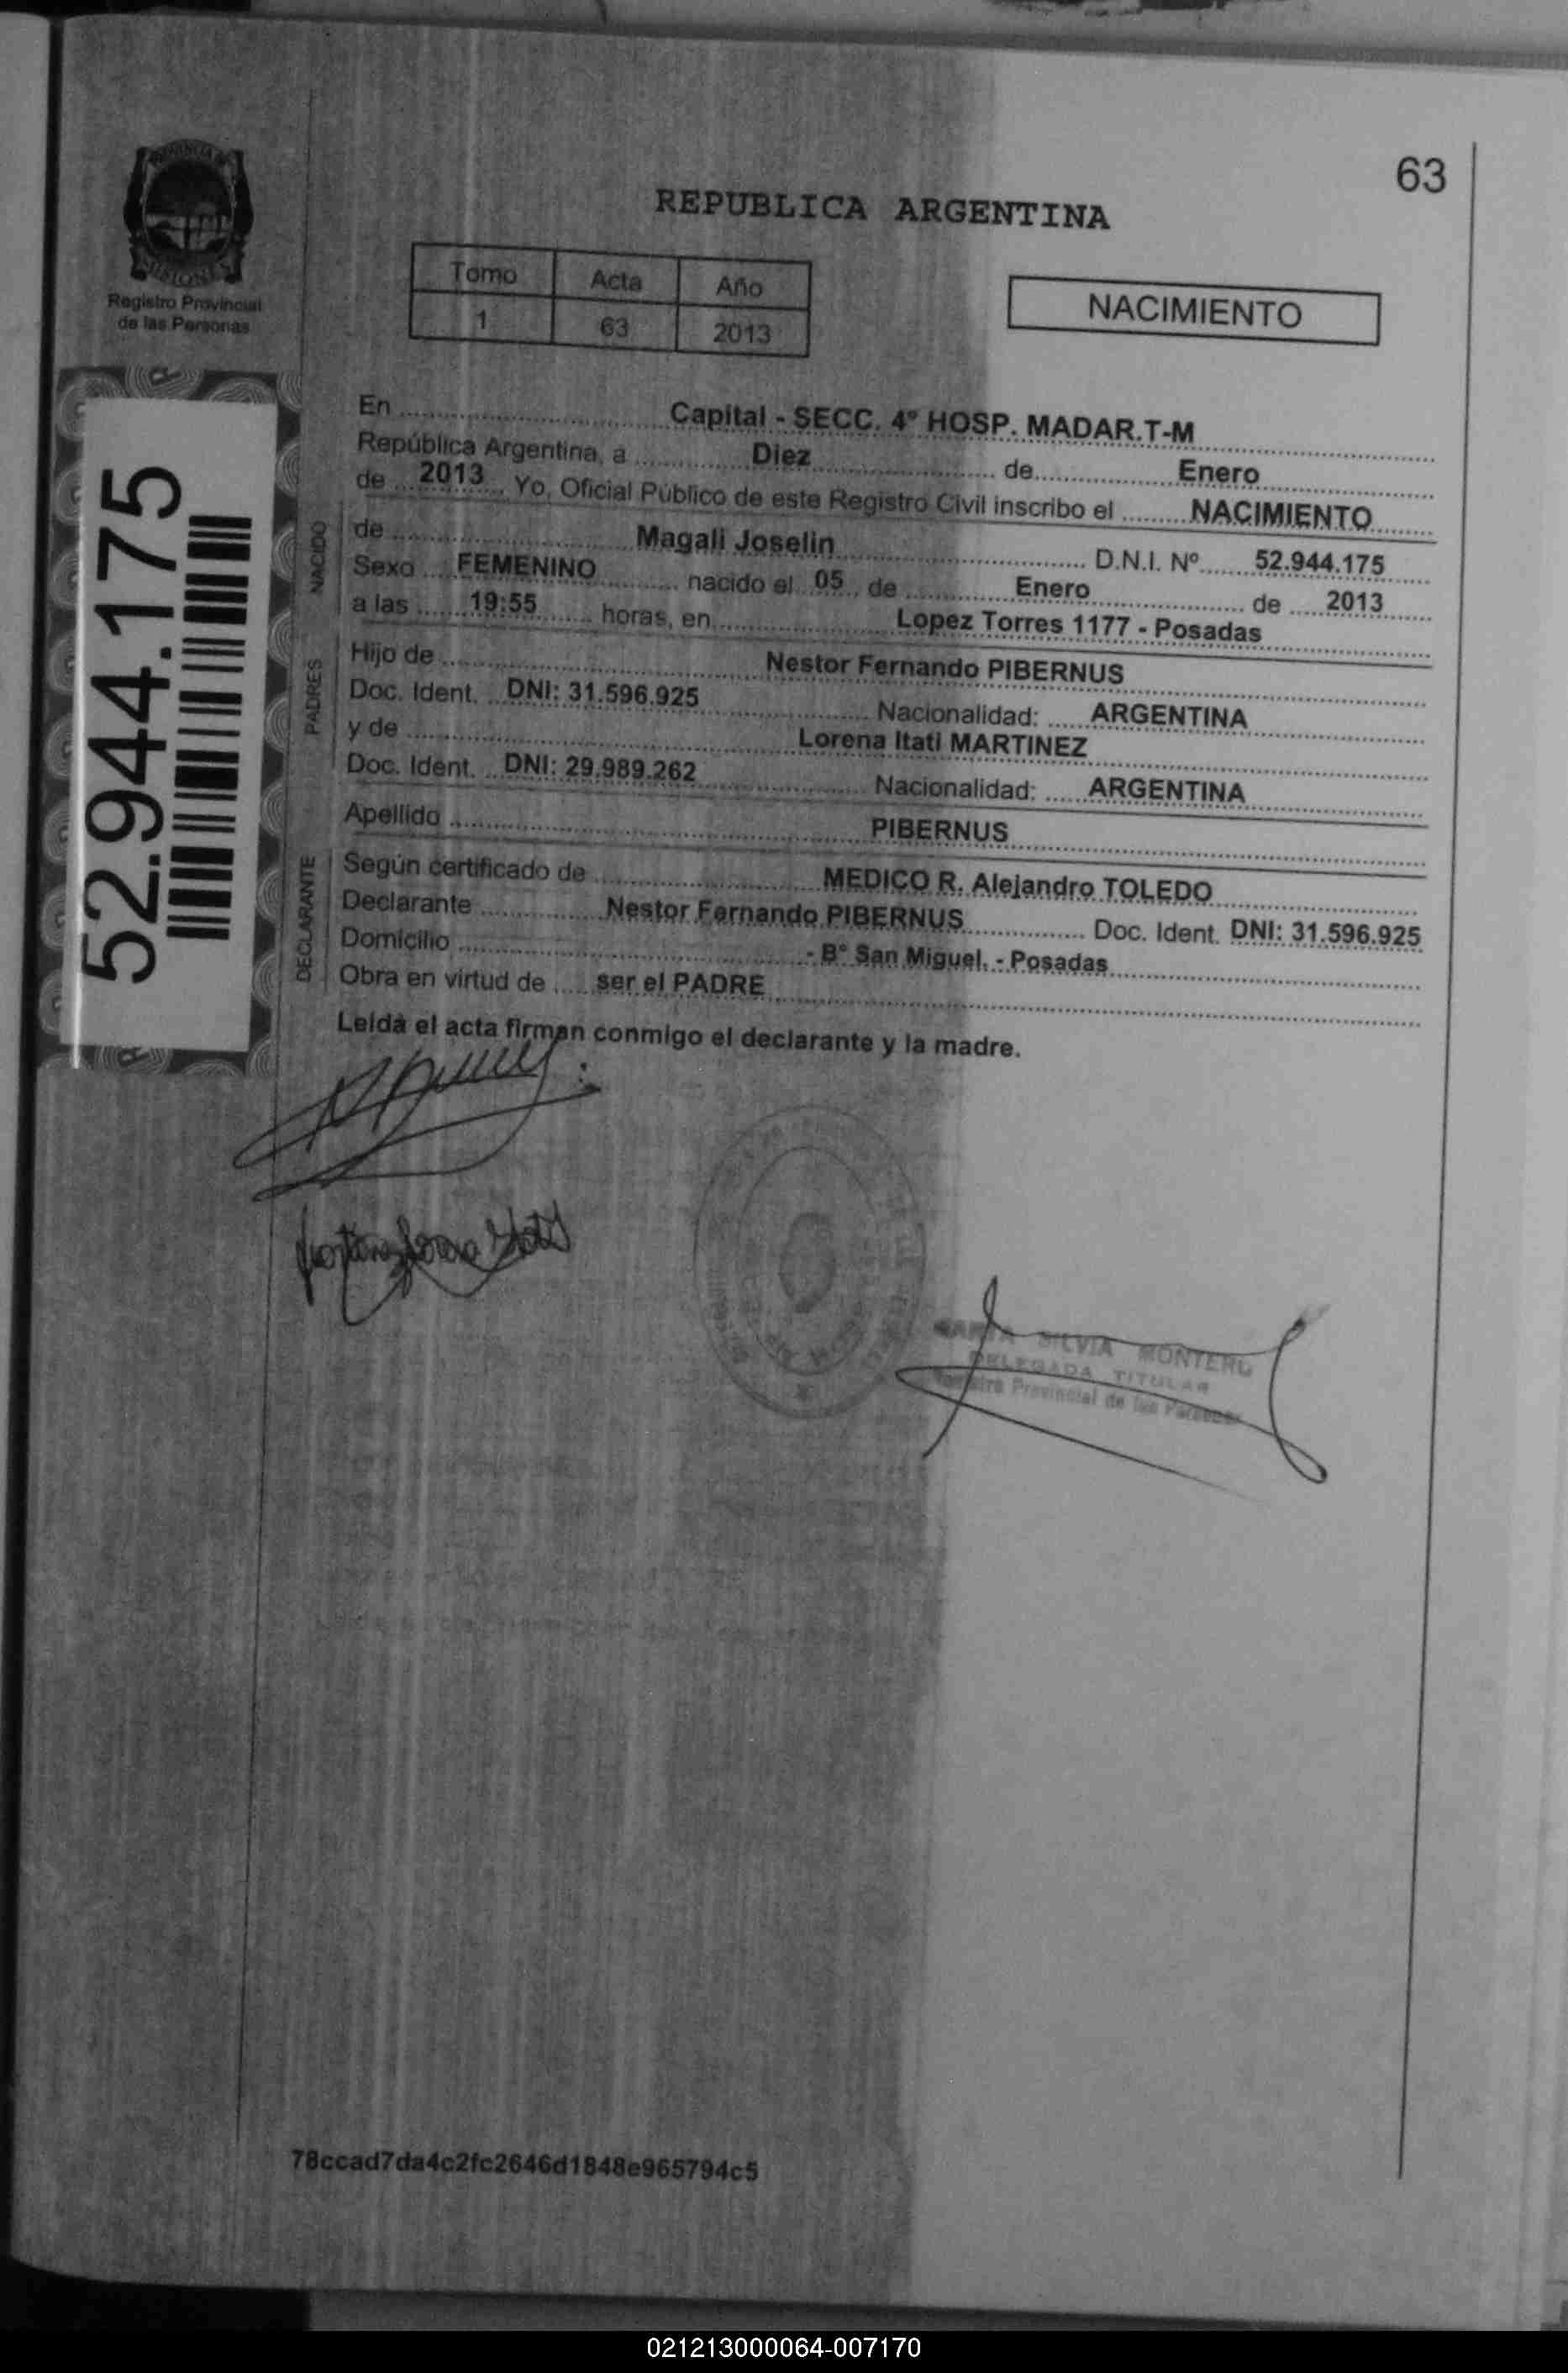 63
REPUBLICA ARGENTINA
PROVINCIA DE
MISIONES
Registro Provincial
de las Personas
Tomo Acta Año
1 63 2013
NACIMIENTO
52.944.175
En Capital - SECC. 4º HOSP. MADAR.T-M
República Argentina, a Diez de Enero
de 2013 Yo, Oficial Público de este Registro Civil inscribo el NACIMIENTO
NACIDO
de Magali Joselin D.N.I. Nº 52.944.175
Sexo FEMENINO nacido el 05 de Enero de 2013
a las 19:55 horas, en Lopez Torres 1177 - Posadas
PADRES
Hijo de Nestor Fernando PIBERNUS
Doc. Ident. DNI: 31.596.925 Nacionalidad: ARGENTINA
y de Lorena Itati MARTINEZ
Doc. Ident. DNI: 29.989.262 Nacionalidad: ARGENTINA
Apellido PIBERNUS
DECLARANTE
Según certificado de MEDICO R. Alejandro TOLEDO
Declarante Nestor Fernando PIBERNUS Doc. Ident. DNI: 31.596.925
Domicilio - Bº San Miguel. - Posadas
Obra en virtud de ser el PADRE
Leída el acta firman conmigo el declarante y la madre.
SILVIA MONTERO
DELEGADA TITULAR
Registro Provincial de las Personas
78ccad7da4c2fc2646d1848e965794c5
021213000064-007170